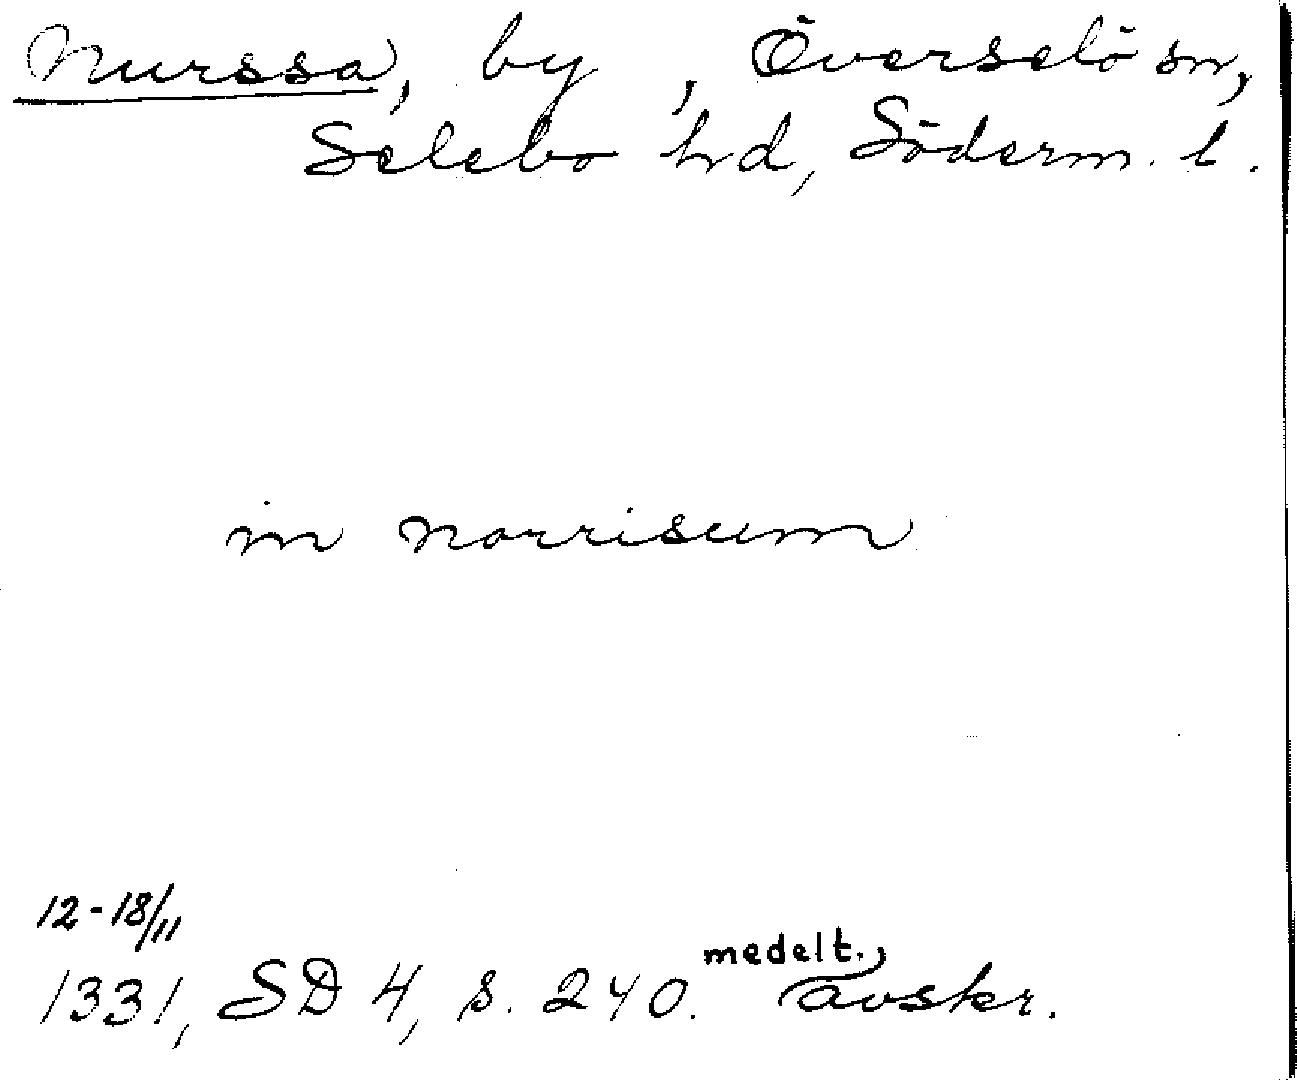 Nurssa, by , Överselö sn,
Selebo hd, Söderm. l.
in norrisum
12-18/11
1331, SD 4, s. 240. medelt. avskr.